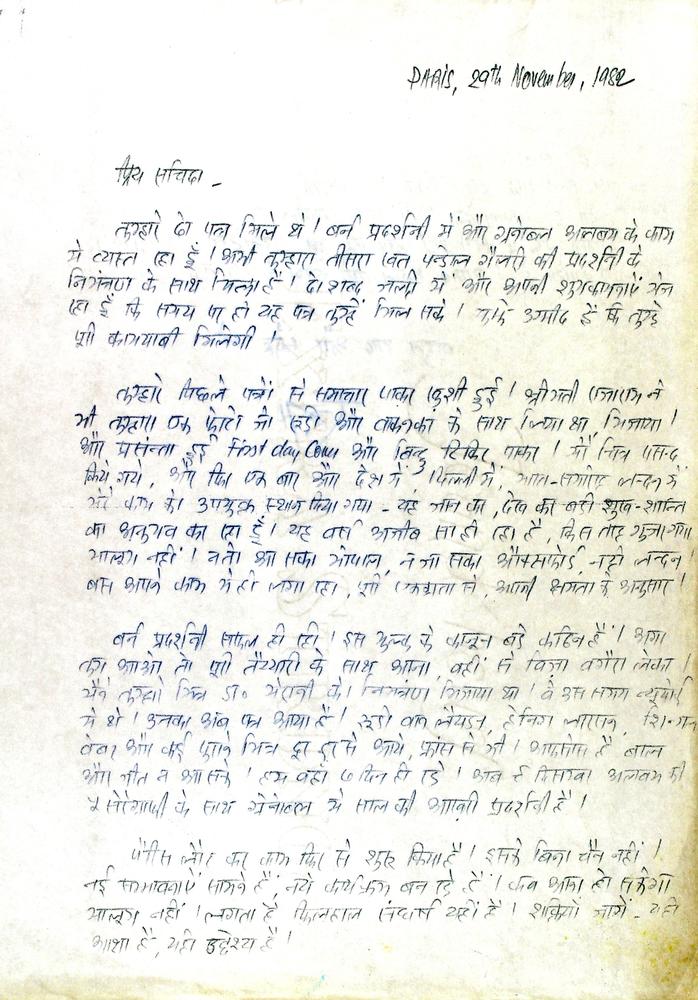 PARIS, 29th November, 1982
प्रिय सचिदा -
तुम्हारे दो पत्र मिले थे । बर्न प्रदर्शनी में और ग्रनोबल अलबम के काम
में व्यस्त रहा हूँ । अभी तुम्हारा तीसरा खत, पन्डोल गैलरी की प्रदर्शनी के
निमंत्रण के साथ मिला है । दो शब्द जल्दी में और अपनी शुभकामनाएँ भेज
रहा हूँ कि समय पर ही यह पत्र तुम्हें मिल सके । मुझे उम्मीद है कि तुम्हें
पूरी कामयाबी मिलेगी ।
तुम्हारे पिछले पत्रों से समाचार पाकर खुशी हुई । श्रीमती राजाराम ने
भी तुम्हारा एक फोटो जो रूडी और वाकनकर के साथ लिया था, भिजाया ।
और प्रसन्नता हुई First day Cover और बिन्दु टिकिट पाकर । मेरे चित्र पसन्द
किये गये, और फिर एक बार और देश में, दिल्ली में, भारत-समारोह लन्दन में
मेरे काम को उपयुक्त स्थान दिया गया - यह जान कर, देख कर बड़ी सुख-शान्ति
का अनुभव कर रहा हूँ । यह वर्ष अजीब सा ही रहा है, किस तरह गुजर गया
मालूम नहीं । न तो आ सका भोपाल, न जा सका ऑक्सफोर्ड, नहीं लन्दन
बस अपने काम में ही लगा रहा, पूरी एकाग्रता से, अपनी क्षमता के अनुसार ।
बर्न प्रदर्शनी सफल ही रही । इस मुल्क के कानून बड़े कठिन हैं । अगर
तुम आओ तो पूरी तैय्यारी के साथ आना, वहीं से विजा वगैरा लेकर ।
मैंने तुम्हारे मित्र डा॰ को निमंत्रण भिजाया था । वे उस समय न्यूयॉर्क
में थे । उनका अब पत्र आया है । रूडी वान लेयडन, हेनिग लारसन,
वेबर और कई पुराने मित्र दूर दूर से आये, फ्रांस से भी । अफसोस है बाल
और गीत न आ सके । हम वहां ७ दिन ही रहे । अब ८ दिसम्बर अलबम की
५ सेरीग्राफी के साथ ग्रेनोबल में साल की आखरी प्रदर्शनी है ।
पेरिस लौट कर काम फिर से शुरू किया है । इसके बिना चैन नहीं ।
नई सम्भावनाएँ सामने हैं, नये कार्यक्रम बन रहे हैं । कब आना हो सकेगा
मालूम नहीं । लगता है फिलहाल संघर्ष यहीं है । शक्तियाँ जागें - यही
आशा है, यही उद्देश्य है ।